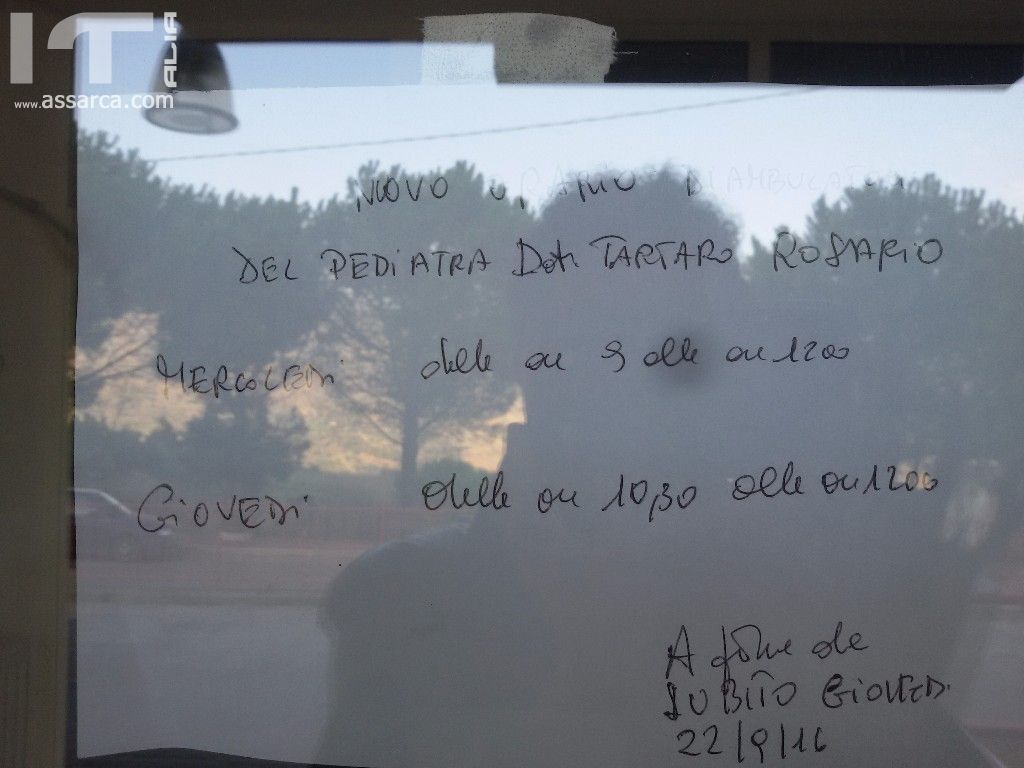 IT
ALIA
www.assarca.com
NUOVO ORARIO DI AMBULATORIO
DEL PEDIATRA Dott. TARTARO ROSARIO
MERCOLEDI dalle ore 9 alle ore 12 00
GIOVEDI dalle ore 10,30 alle ore 12 00
A
SUBITO GIOVEDI
22/9/16